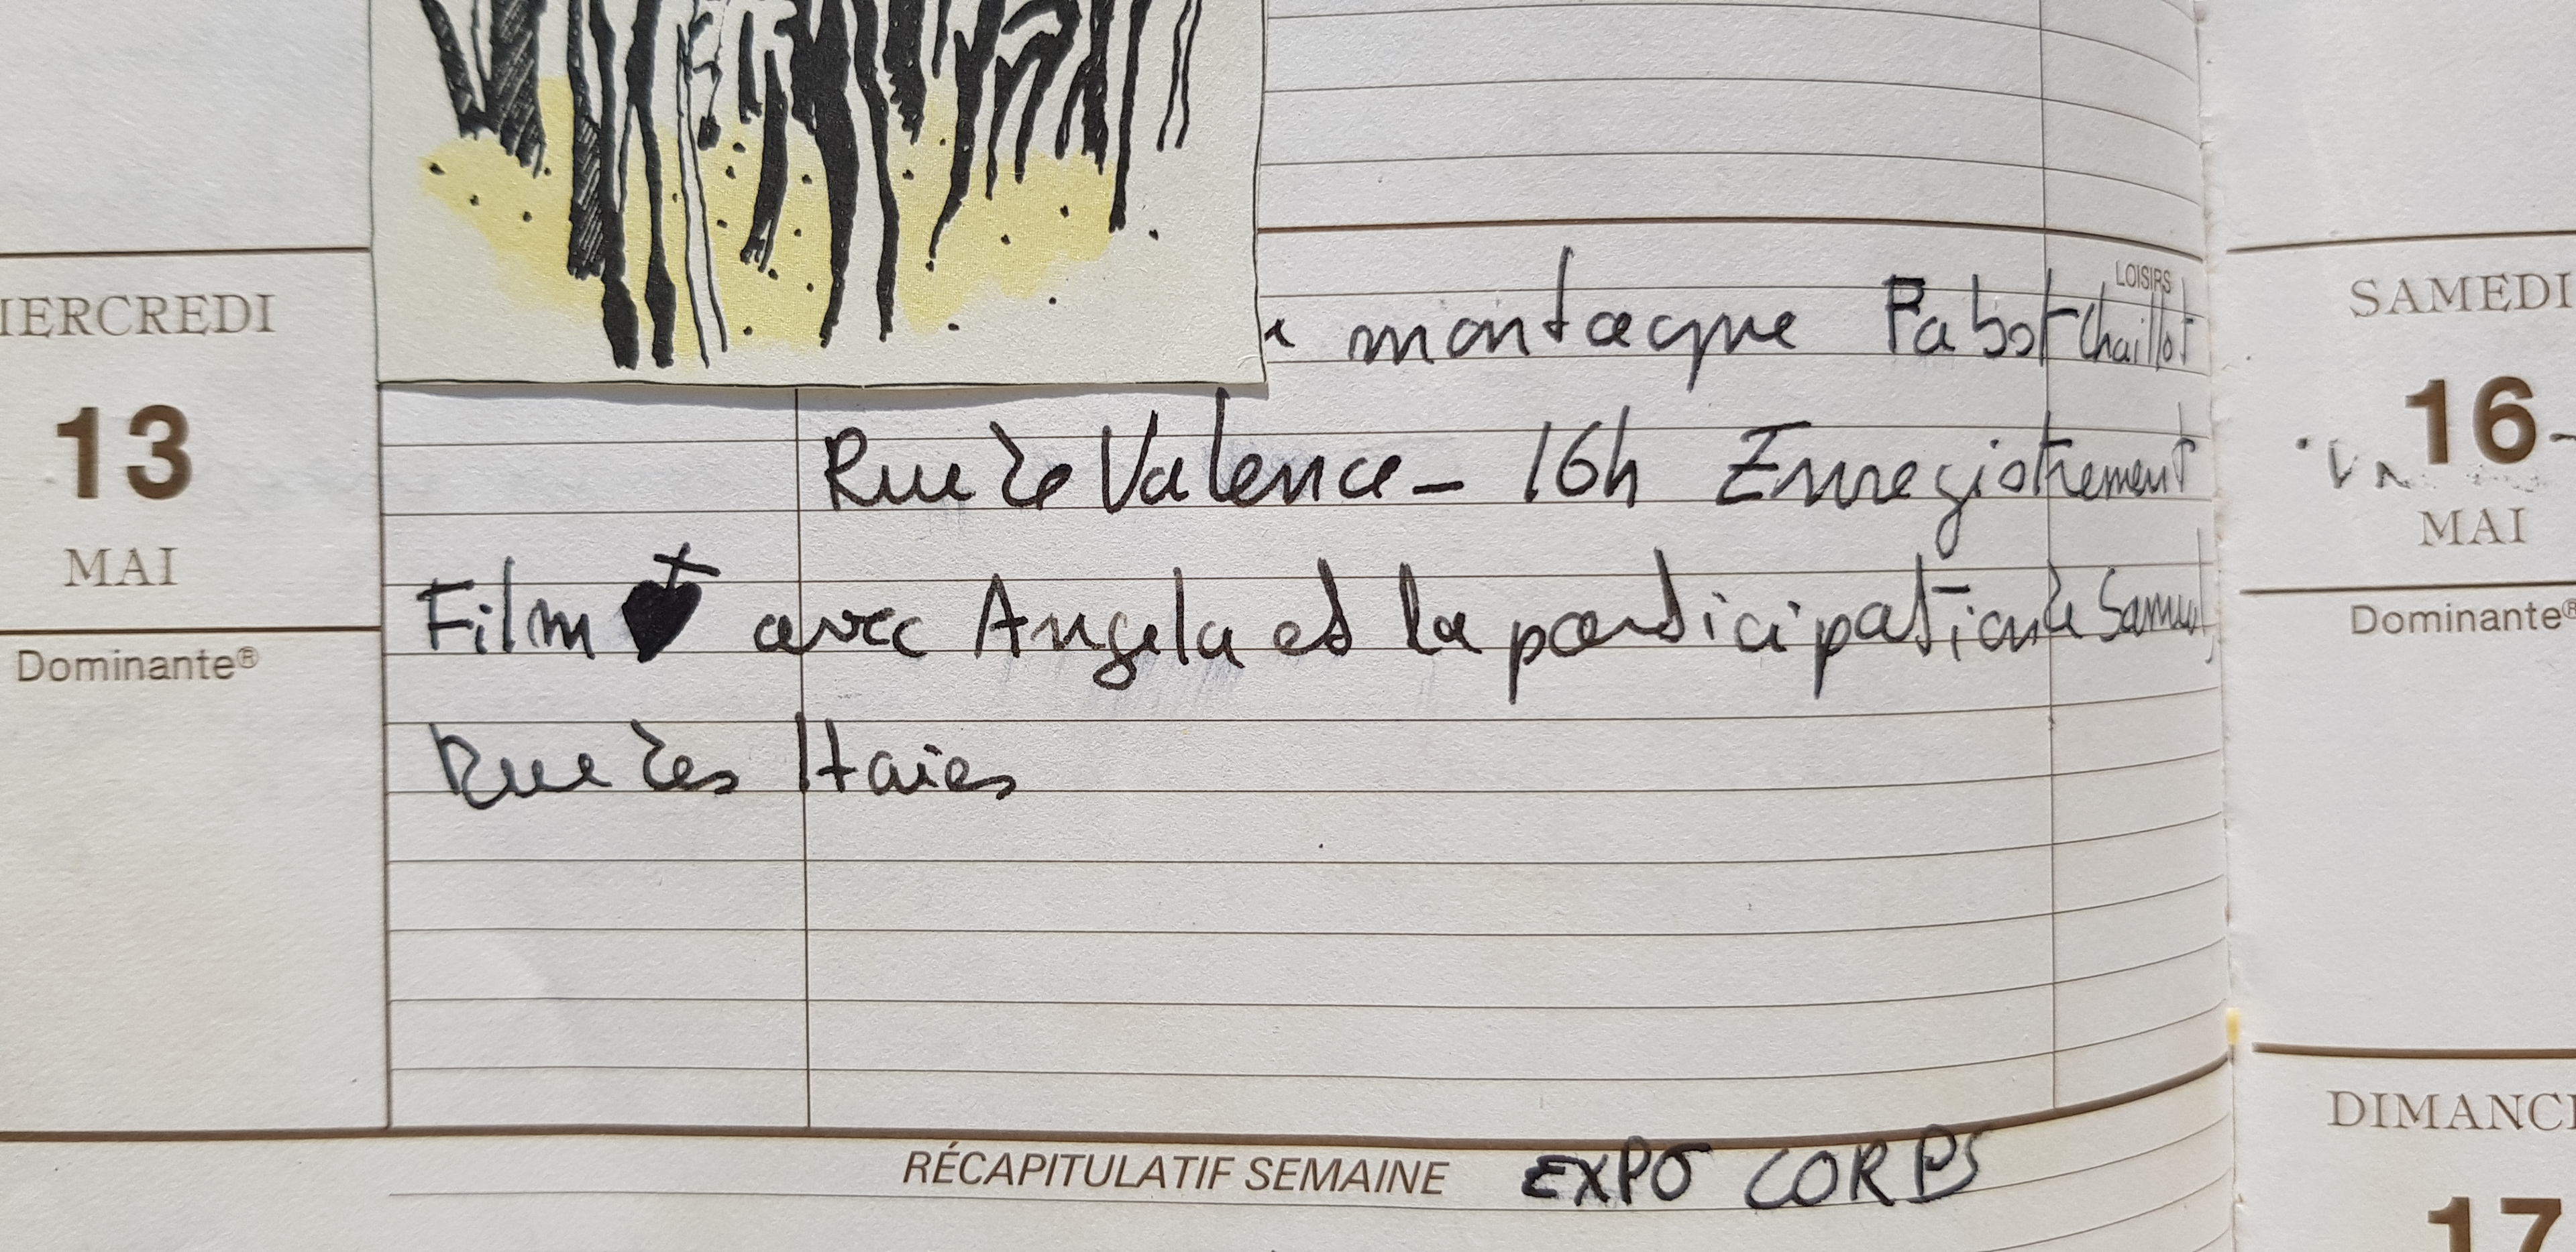 LOISIRS
montagne Pabst Chaillot
Rue de Valence - 16h Enregistrement
Film avec Angela et la participation de Samuel,
Rue des Haies
MERCREDI
13
MAI
Dominante®
RÉCAPITULATIF SEMAINE EXPO CORPS
SAMEDI
16
MAI
Dominante®
DIMANC
17